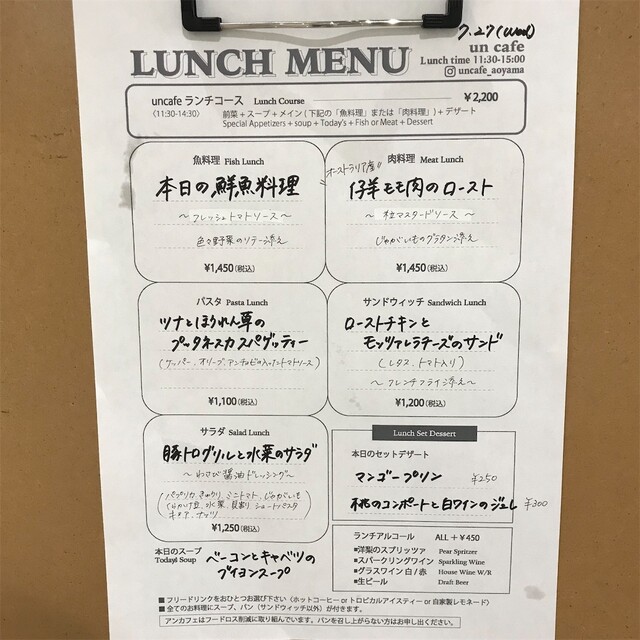 7.27(Wed)
LUNCH MENU
un cafe
Lunch time 11:30-15:00
uncafe_aoyama
uncafe ランチコース Lunch Course ¥2,200
〈11:30-14:30〉 前菜+スープ+メイン(下記の「魚料理」または「肉料理」)+デザート
Special Appetizers + soup + Today's + Fish or Meat + Dessert
魚料理 Fish Lunch
本日の鮮魚料理
～フレッシュトマトソース～
色々野菜のソテー添え
¥1,450(税込)
肉料理 Meat Lunch
"オーストラリア産"
仔羊モモ肉のロースト
～粒マスタードソース～
じゃがいものグラタン添え
¥1,450(税込)
パスタ Pasta Lunch
ツナとほうれん草の
プッタネスカスパゲッティー
(ケッパー、オリーブ、アンチョビの入ったトマトソース)
¥1,100(税込)
サンドウィッチ Sandwich Lunch
ローストチキンと
モッツァレラチーズのサンド
(レタス、トマト入り)
～フレンチフライ添え～
¥1,200(税込)
サラダ Salad Lunch
豚トログリルと水菜のサラダ
～わさび醤油ドレッシング～
(パプリカ、きゅうり、ミニトマト、じゃがいも
水菜、貝割、ショートパスタ
ナッツ)
¥1,250(税込)
Lunch Set Dessert
本日のセットデザート
マンゴープリン ¥250
桃のコンポートと白ワインのジュレ ¥300
本日のスープ
Todays Soup
ベーコンとキャベツの
ブイヨンスープ
ランチアルコール ALL +¥450
■洋梨のスプリッツァ Pear Spritzer
■スパークリングワイン Sparkling Wine
■グラスワイン 白 / 赤 House Wine W/R
■生ビール Draft Beer
■フリードリンクをおひとつお選び下さい〈ホットコーヒー or トロピカルアイスティー or 自家製レモネード〉
■全てのお料理にスープ、パン(サンドウィッチ以外)が付きます。
アンカフェはフードロス削減に取り組んでいます。パンを召し上がらない方はお申し出ください。